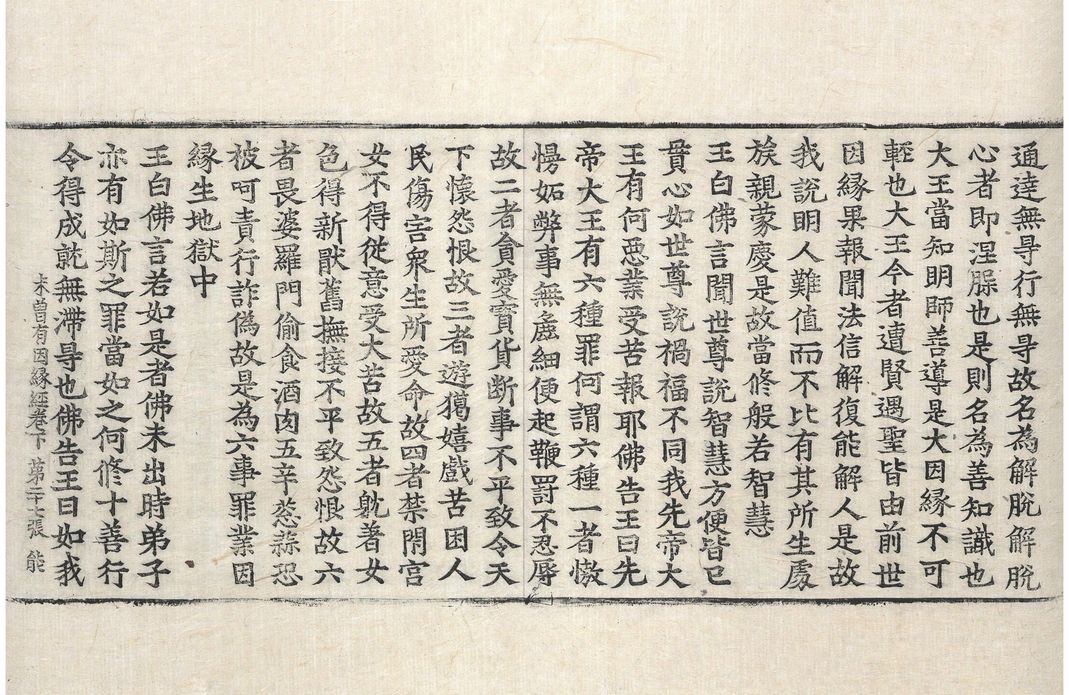 通達無㝵行無㝵故名為解脫解脫
心者即涅槃也是則名為善知識也
大王當知明師善導是大因緣不可
輕也大王今者遭賢遇聖皆由前世
因緣果報聞法信解復能解人是故
我說明人難值而不比有其所生處
族親蒙慶是故當修般若智慧
王白佛言聞世尊說智慧方便皆已
貫心如世尊說禍福不同我先帝大
王有何惡業受苦報耶佛告王曰先
帝大王有六種罪何謂六種一者憿
慢妬弊事無麁細便起鞭罰不忍辱
故二者貪愛寳貨断事不平致令天
下懷怨恨故三者遊獦嬉戲苦困人
民傷害衆生所愛命故四者禁閇宮
女不得從意受大苦故五者躭著女
色得新猒舊撫接不平致怨恨故六
者畏婆羅門偷食酒肉五辛葱蒜恐
被呵責行詐偽故是為六事罪業因
緣生地獄中
王白佛言若如是者佛未出時弟子
亦有如斯之罪當如之何修十善行
令得成就無滯㝵也佛告王曰如我
未曾有因緣經卷下 第二十七張 能